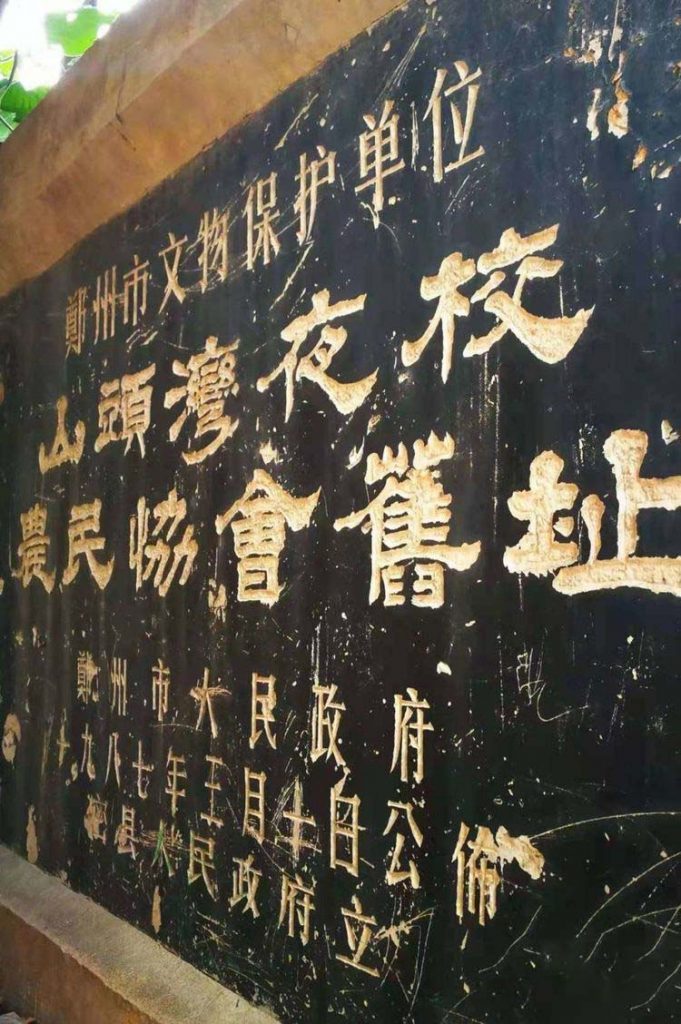 鄭州市文物保护单位
山頭灣夜校
農民協會舊址
鄭州市人民政府
九八七年月十日公佈
县人民政府立